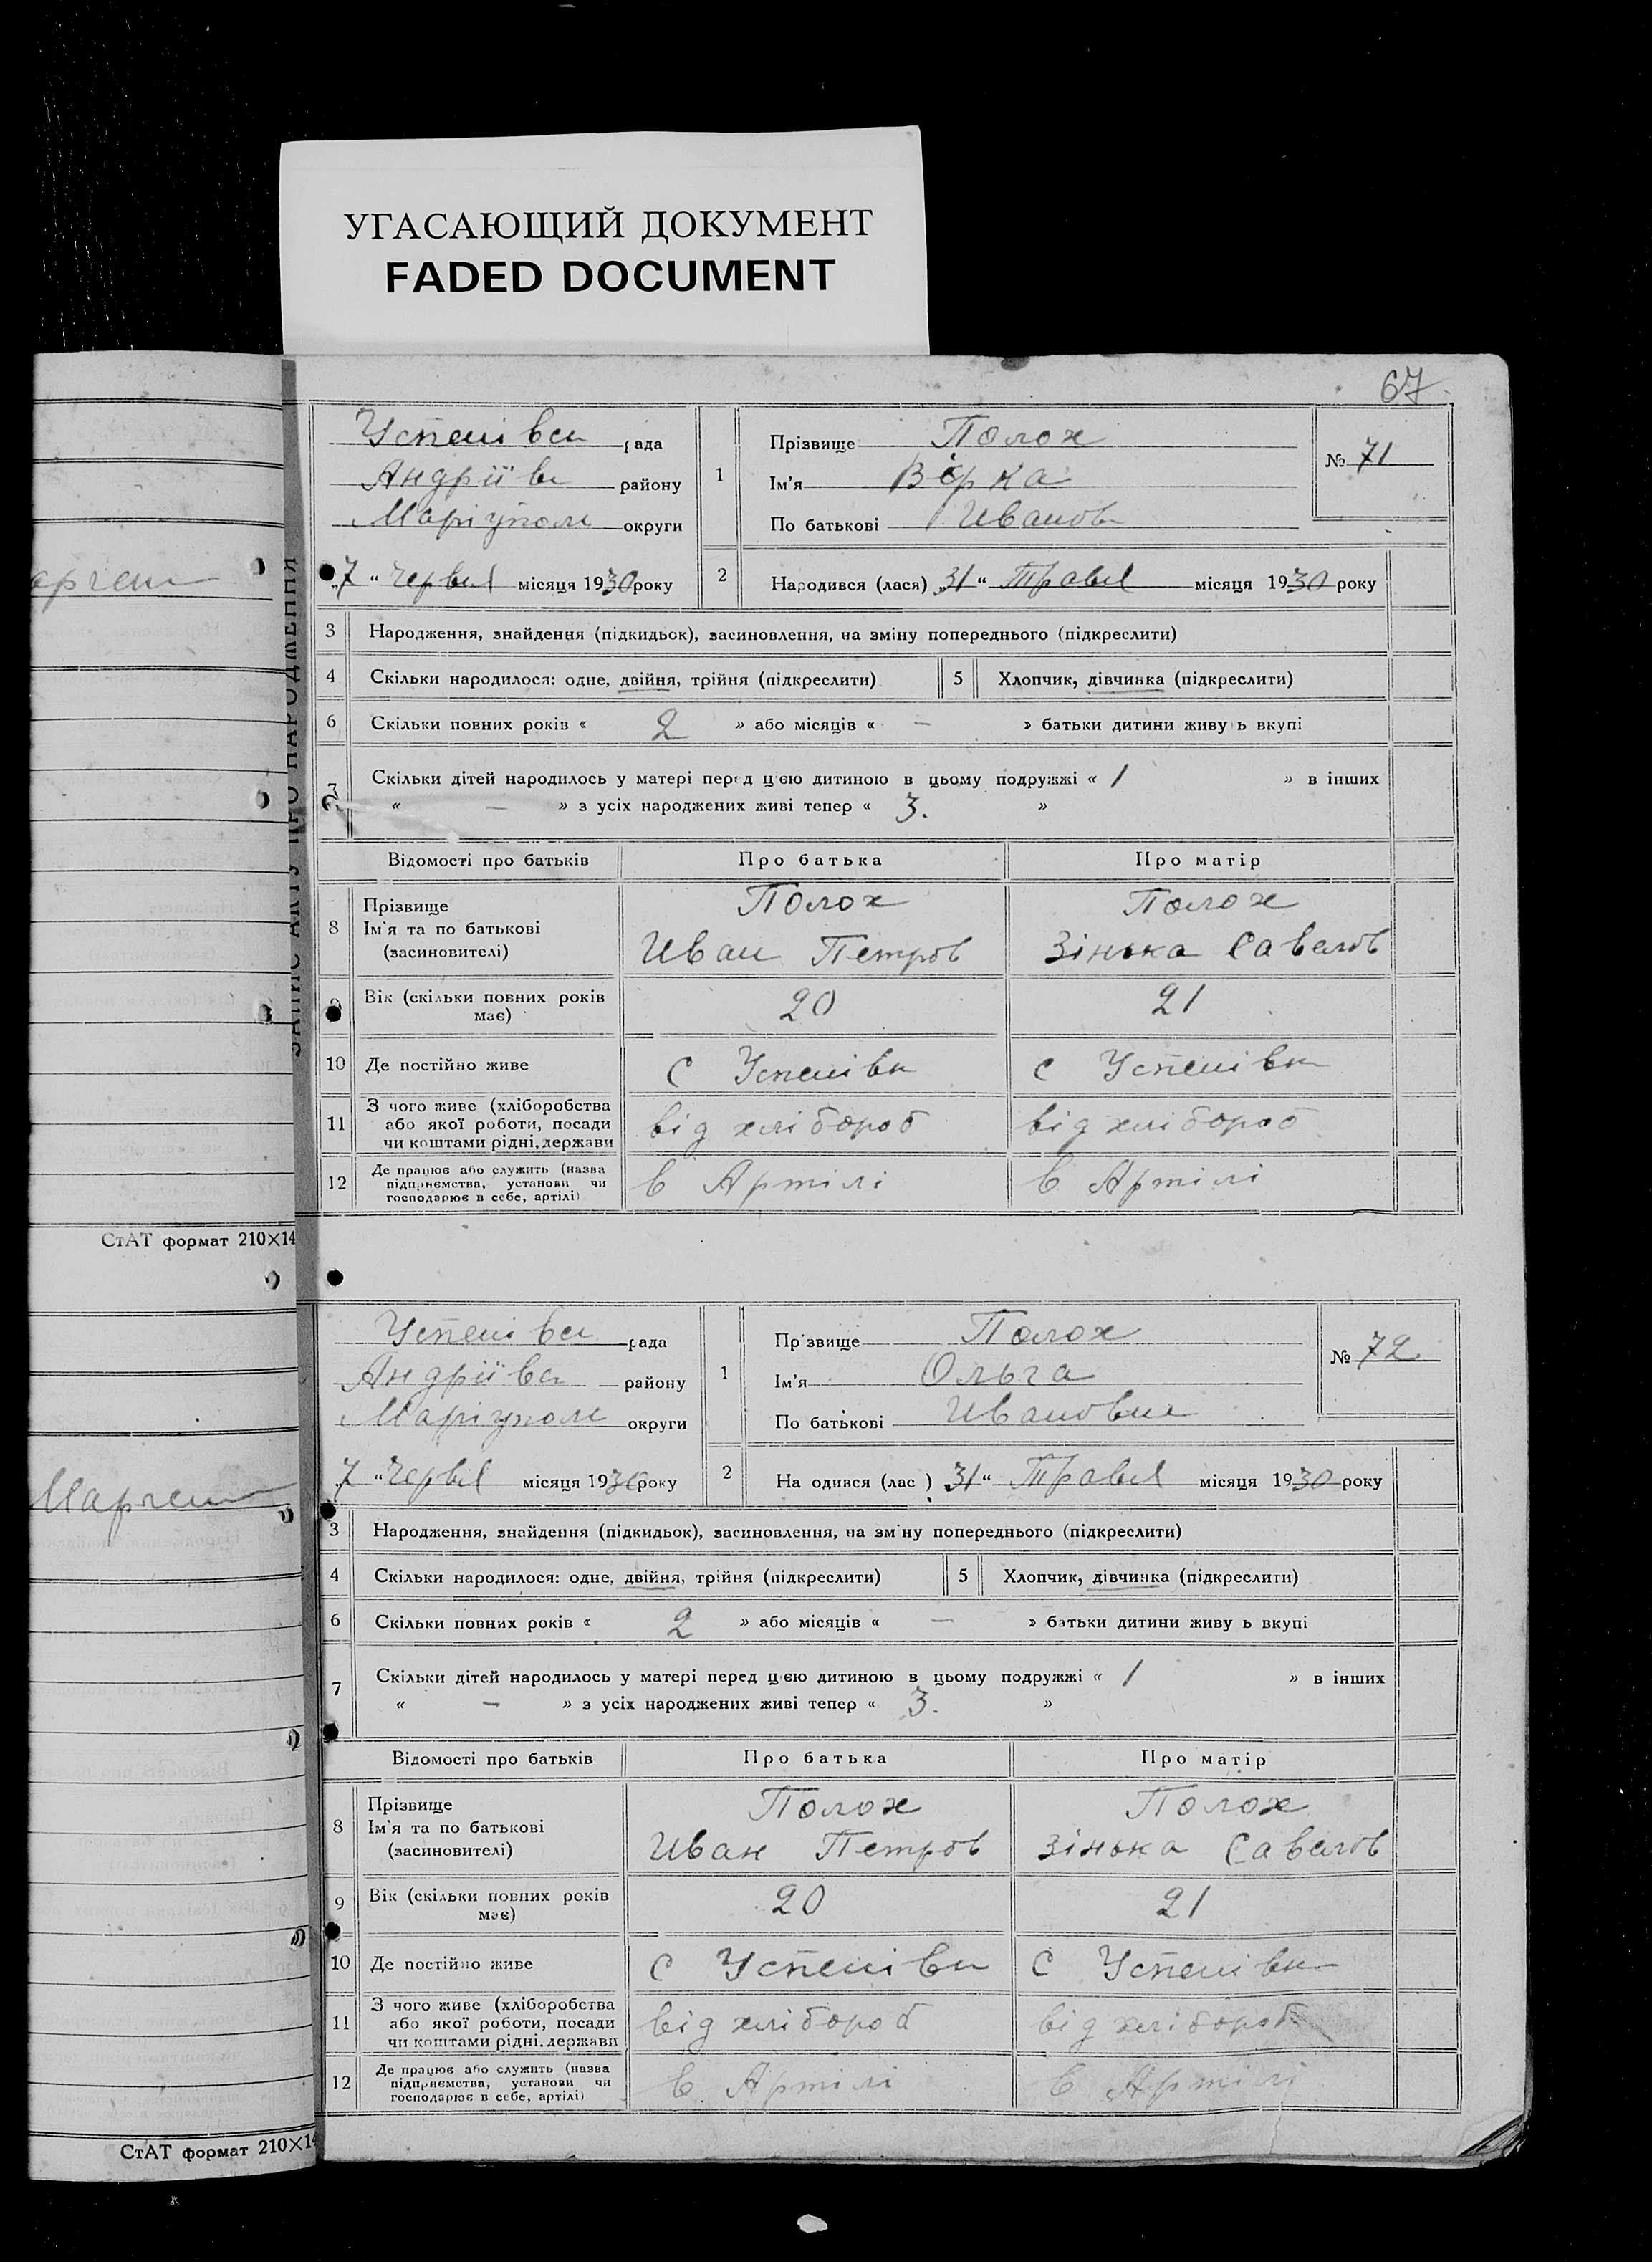 УГАСАЮЩИЙ ДОКУМЕНТ
FADED DOCUMENT
67
ЗАПИС АКТУ ПРО НАРОДЖЕННЯ
Успенівсь рада
Андріївсь району
Маріупол округи
„7“ Червня місяця 1930 року
1
Прізвище Полох
Ім'я Вірка
По батькові Иванов
№ 71
2
Народився (лася) „31“ Травня місяця 1930 року
3 Народження, знайдення (підкидьок), засиновлення, на зміну попереднього (підкреслити)
4 Скільки народилося: одне, двійня, трійня (підкреслити) 5 Хлопчик, дівчинка (підкреслити)
6 Скільки повних років « 2 » або місяців « — » батьки дитини живу ь вкупі
7 Скільки дітей народилось у матері перед цією дитиною в цьому подружжі « 1 » в інших
« — » з усіх народжених живі тепер « 3. »
Відомості про батьків Про батька Про матір
8 Прізвище Полох Полох
Ім'я та по батькові
(засновителі) Иван Петров Зінька Савелов
9 Вік (скільки повних років
має) 20 21
10 Де постійно живе с Успенівк с Успенівк
11 З чого живе (хліборобства
або якої роботи, посади
чи коштами рідні, держави від хлібороб від хлібороб
12 Де працює або служить (назва
підприємства, установи чи
господарює в себе, артілі) в Артілі в Артілі
СтАТ формат 210×14
Успенівсь рада
Андріївсь району
Маріупол округи
7 “ Червня місяця 1930 року
1
Пр звище Полох
Ім'я Ольга
По батькові Ивановна
№ 72
2
На одився (лас ) 31“ Травня місяця 1930 року
3 Народження, знайдення (підкидьок), засиновлення, на зм ну попереднього (підкреслити)
4 Скільки народилося: одне, двійня, трійня (підкреслити) 5 Хлопчик, дівчинка (підкреслити)
6 Скільки повних років « 2 » або місяців « — » батьки дитини живу ь вкупі
7 Скільки дітей народилось у матері перед цією дитиною в цьому подружжі « 1 » в інших
« — » з усіх народжених живі тепер « 3. »
Відомості про батьків Про батька Про матір
8 Прізвище Полох Полох
Ім'я та по батькові
(засиновителі) Иван Петров Зінька Савелов
9 Вік (скільки повних років
має) 20 21
10 Де постійно живе с Успенівк с Успенівк
11 З чого живе (хліборобства
або якої роботи, посади
чи коштами рідні, держави від хлібороб від хлібороб
12 Де працює або служить (назва
підприємства, установи чи
господарює в себе, артілі) в Артілі в Артілі
СтАТ формат 210×14